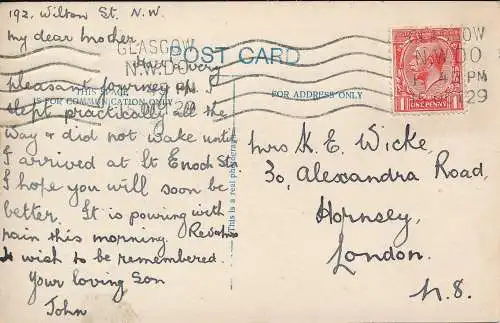 192, Wilton St. N.W.
My dear Mother
Have a very
pleasant journey. I
slept practically all the
way & did not wake until
I arrived at St Enoch St.
I hope you will soon be
better. It is pouring with
rain this morning.
wish to be remembered.
Your loving Son
John
POST CARD
THIS SPACE
IS FOR COMMUNICATION ONLY
FOR ADDRESS ONLY
This is a real photograph
GLASGOW
N.W.DO
PM
29
GLASGOW
N.W.DO
4 PM
29
1 ONE PENNY 1
Mrs K. E. Wicke,
30, Alexandra Road,
Hornsey,
London.
N.8.